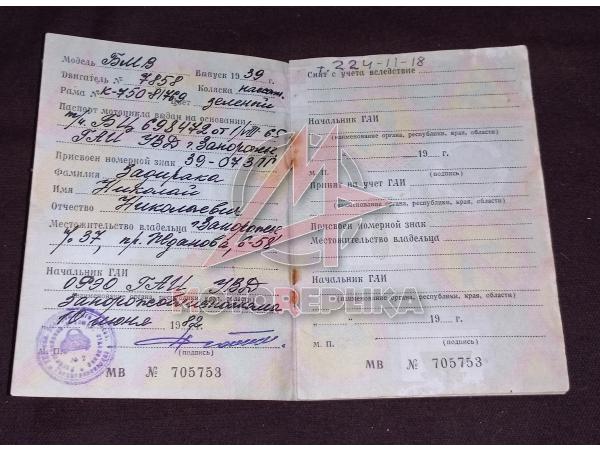 Модель БМВ
Двигатель № 7858 Выпуск 1939 г.
Рама № К-750-81769 Коляска пассаж.
Цвет зеленый
Паспорт мотоцикла выдан на основании
т/п. ВЦ 698472 от
ГАИ УВД г. Запорож
Присвоен номерной знак 39-07 ЗПГ
Фамилия Задирака
Имя Николай
Отчество Никольевич
Местожительство владельца Запорож
у. 37, пр. Жданова, 58
Начальник ГАИ
ОРЭО ГАИ УВД
(наименование органа,
10 июня 1992 г.
М. П.
(подпись)
МВ № 705753
т. 224-11-18
Снят с учета вследствие
Начальник ГАИ
(наименование органа, республики, края, области)
19 г.
М. П. (подпись)
Принят на учет ГАИ
(наименование органа, республики, края, области)
Присвоен номерной знак
Местожительство владельца
Начальник ГАИ
(наименование органа, республики, края, области)
19 г.
М. П. (подпись)
МВ № 705753
МОТОРЕРЫКА